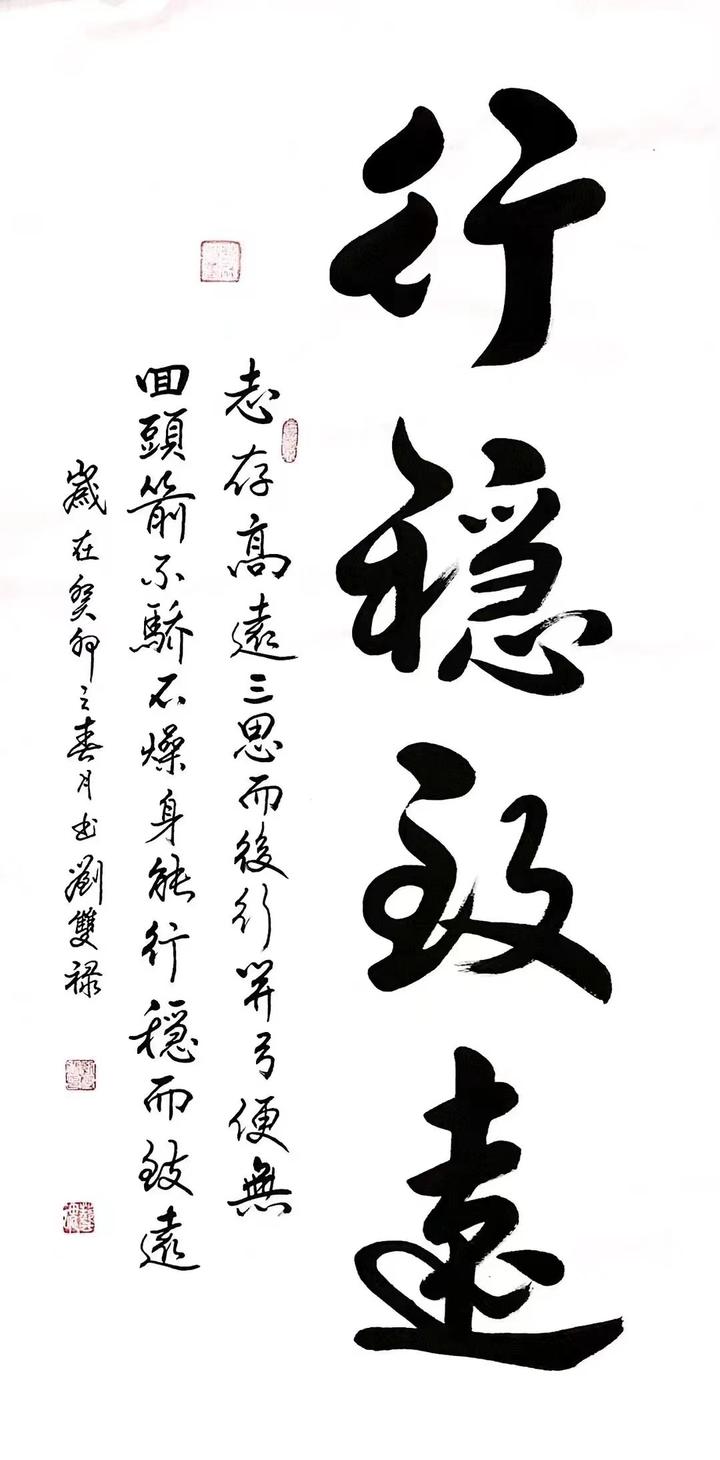 行穩致遠
志存高遠三思而後行開弓便無
回頭箭不驕不燥身能行穩而致遠
歲在癸卯之春月书劉雙祿